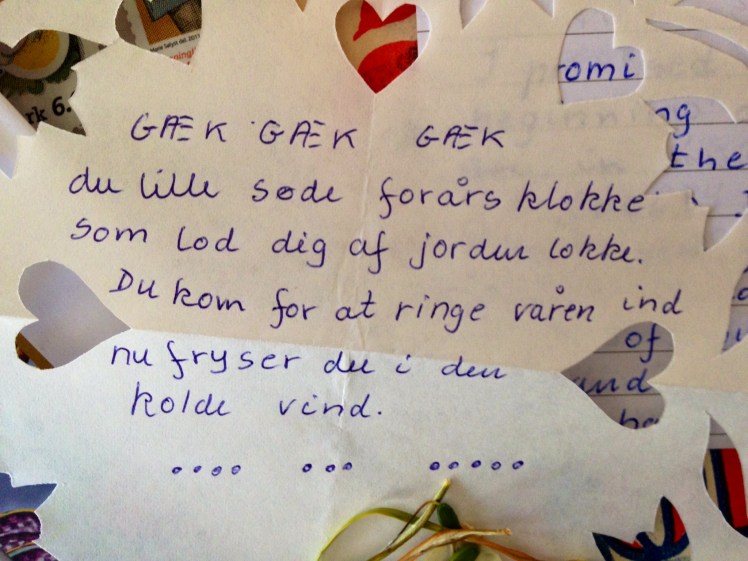 GÆK GÆK GÆK
du lille søde forårs klokke
som lod dig af jorden lokke.
Du kom for at ringe våren ind
nu fryser du i den
kolde vind.
.... ... .....
omi
ng
the
of
and
rk 6.